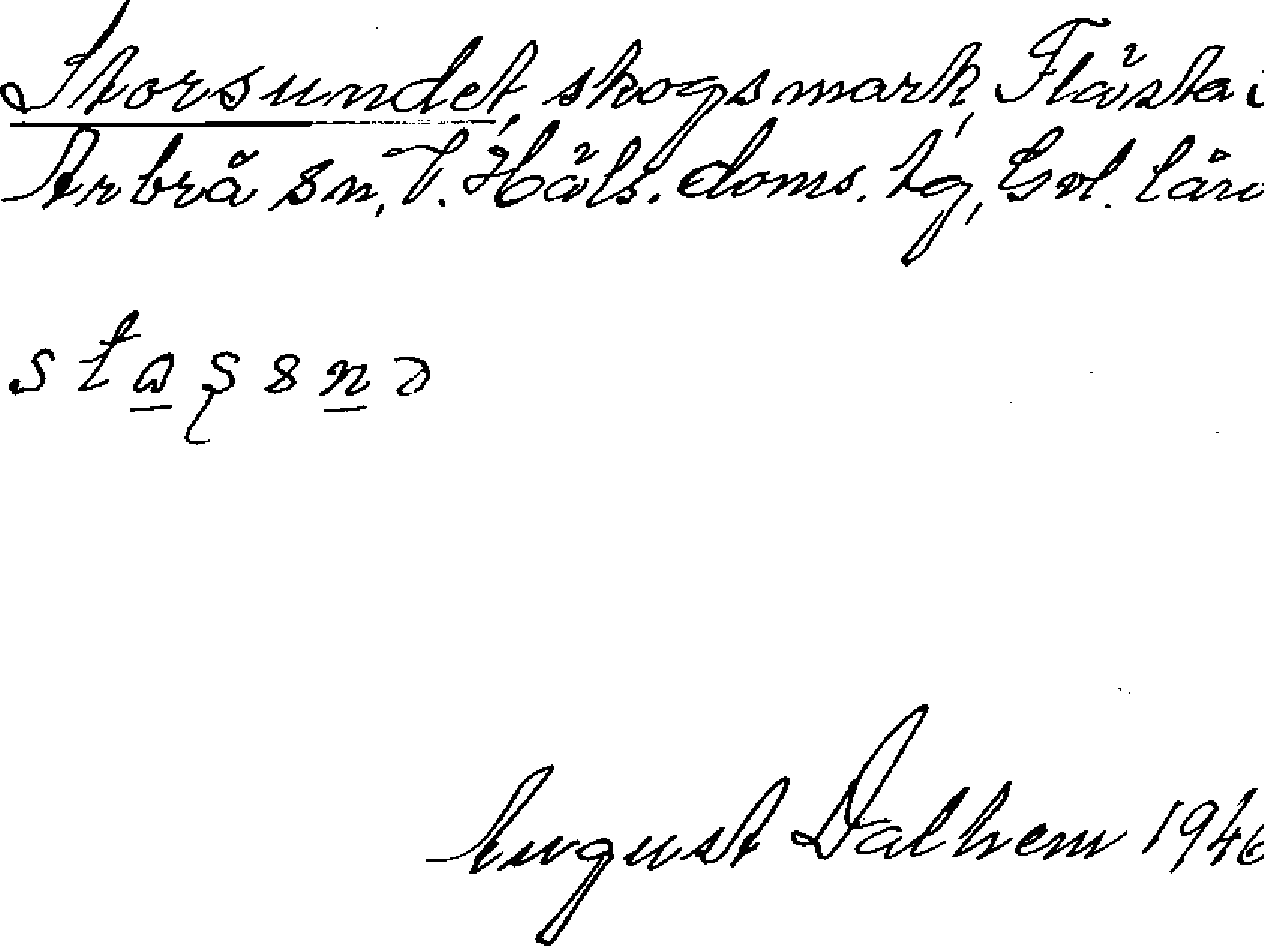 Storsundet, skogsmark, Flästa i
Arbrå sn, V. Häls. doms. tg, Gvl. län
August Dalhem 1946